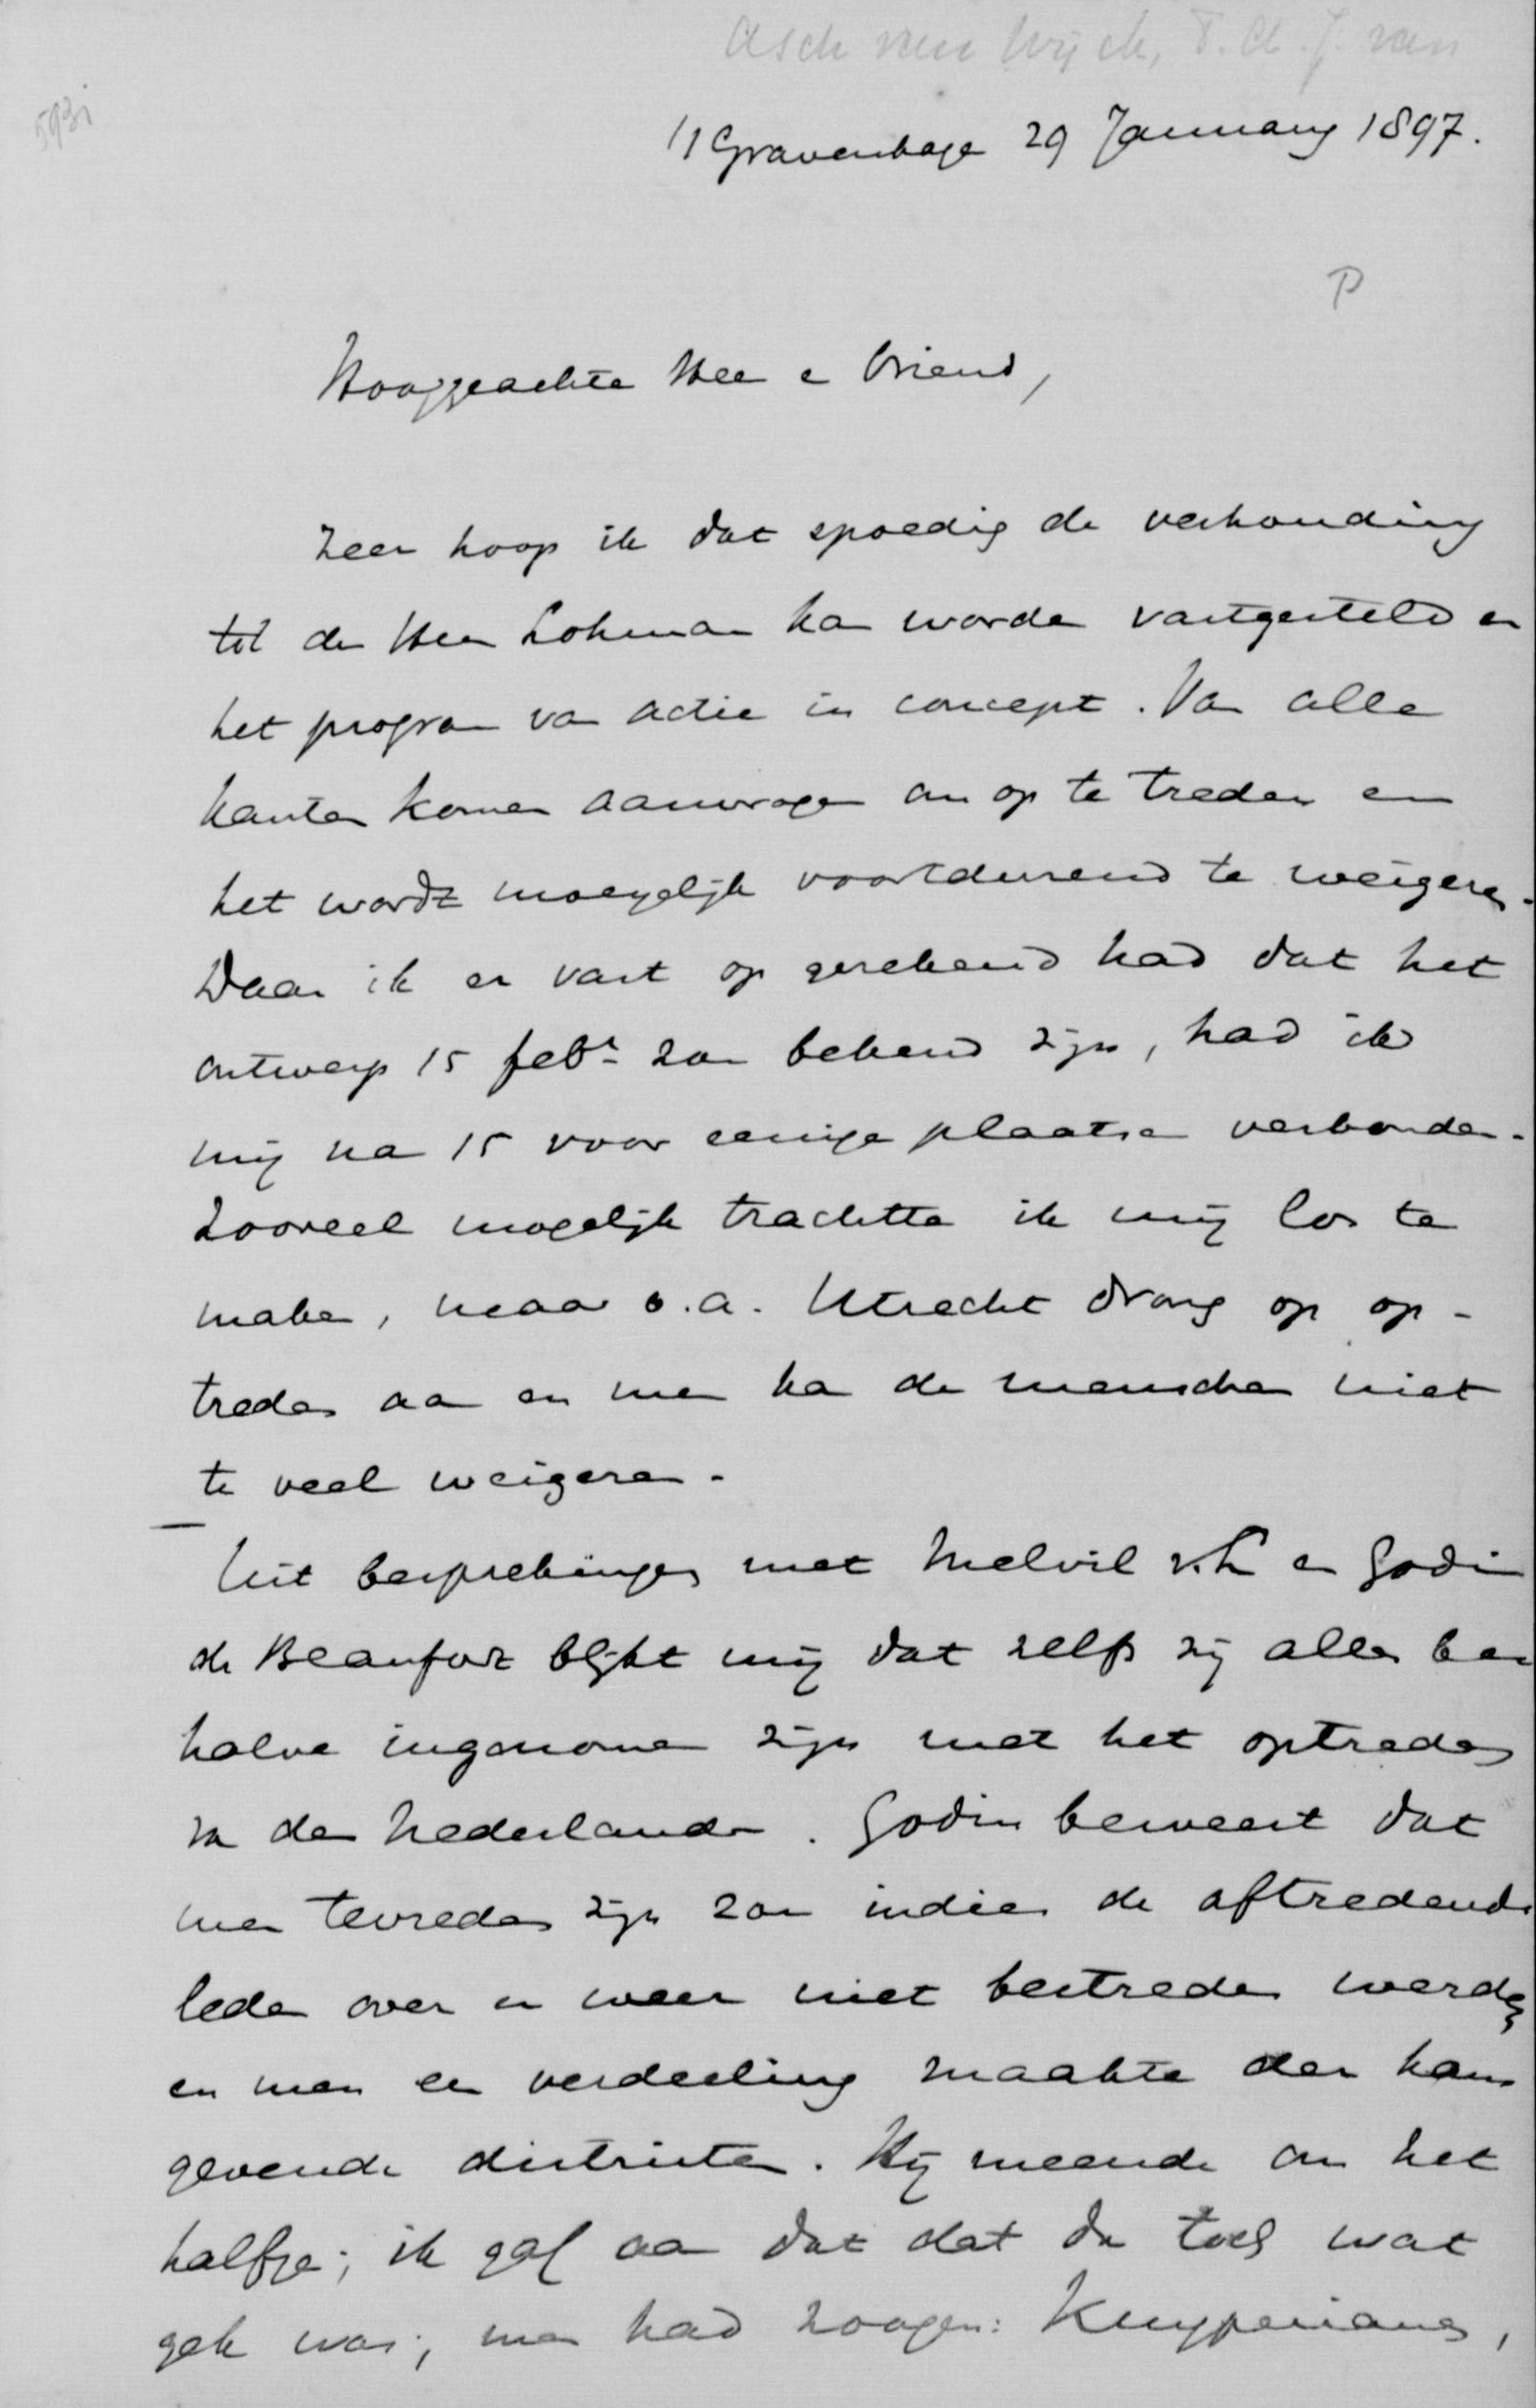 Asch van Wijck, T.A.J. van
593i
's Gravenhage 29 January 1897.
P
Hooggeachte Heer en Vriend,
Zeer hoop ik dat spoedig de verhouding
tot den Heer Lohman kan worden vastgesteld en
het program van actie in concept. Van alle
kanten komen aanvragen om op te treden en
het wordt moeyelijk voortdurend te weigeren.
Daar ik er vast op gerekend had dat het
ontwerp 15 febr. zou bekend zijn, had ik
mij na 15 voor eenige plaatsen verbonden.
Zooveel mogelijk trachtte ik mij los te
maken, maar o.a. Utrecht drong op op-
treden aan en men kan de menschen niet
te veel weigeren.
Uit besprekingen met Melvil v.L en Godin
de Beaufort blijkt mij dat zelfs zij alles be
halve ingenomen zijn met het optreden
van de Nederlander. Godin beweert dat
men tevreden zijn zou indien de aftredende
leden over en weer niet bestreden werden
en men een verdeeling maakte der kans
gevende districten. Hij meende om het
halfje; ik gaf aan dat dat dan toch wat
gek was; men had zoogen: Kuyperianen,